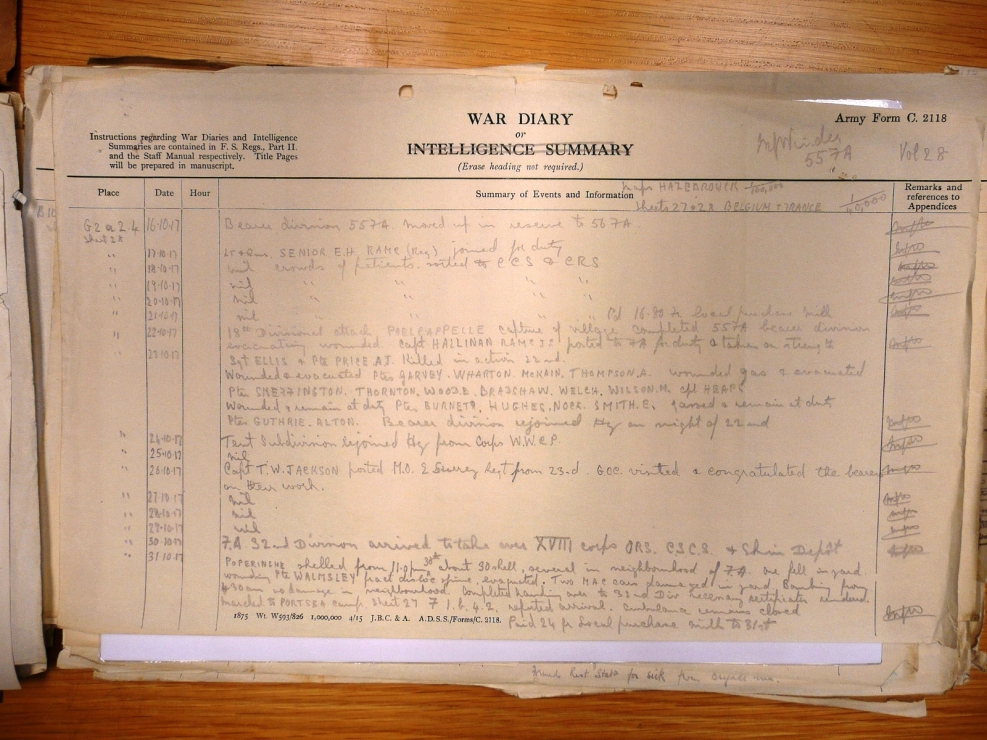 WAR DIARY
or
INTELLIGENCE SUMMARY
(Erase heading not required.)
Army Form C. 2118
Instructions regarding War Diaries and Intelligence
Summaries are contained in F. S. Regs., Part II.
and the Staff Manual respectively. Title Pages
will be prepared in manuscript.
55 7A
Vol 28
Place
Date
Hour
Summary of Events and Information
Maps HAZEBROUCK 1/100,000
Sheets 27 + 28 BELGIUM + FRANCE 1/40,000
Remarks and
references to
Appendices
G 2 a 2 4 16-10-17 Bearer division 557A moved up in reserve to 567A
Sheet 28
" 17-10-17 Lt & Qms. SENIOR E.H. RAMC (Reg) joined for duty
" 18-10-17 nil crowds of patients. sorted to CCS & CRS
" 19-10-17 nil " " " "
" 20-10-17 nil " " " "
" 21-10-17 nil " " Pd 16.80 fr local purchase milk
" 22-10-17 18th Divisional attack POELCAPPELLE capture of village completed 557A bearer division
evacuating wounded. Capt HALLINAN RAMC posted to FA for duty & taken on strength
" 23-10-17 Sgt ELLIS & Pte PRICE A.J. Killed in action 22nd.
Wounded & evacuated Ptes GARVEY. WHARTON. McKAIN. THOMPSON.A. wounded gas & evacuated
Ptes THORNTON. BRADSHAW. WELCH. WILSON.M. cpl HEAPS
Wounded & remain at duty Ptes BURNETT, HUGHES, SMITH.E. gassed & remain at duty
Ptes GUTHRIE. ALTON. Bearer division rejoined Hq on night of 22nd
" 24-10-17 Tent Subdivision rejoined Hq from Corps W.W.C.P.
" 25-10-17 nil
" 26-10-17 Capt T.W. JACKSON posted M.O. E Surrey Regt from 23-d. GOC visited & congratulated the bearers
on their work.
" 27-10-17 nil
" 28-10-17 nil
" 29-10-17 nil
" 30-10-17 F.A. 32nd Division arrived to take over XVIII corps & Skin Depôt
" 31-10-17 POPERINGHE shelled from 11.0 pm 30th about 30 shell, several in neighbourhood of F.A. one fell in yard
wounding Pte WALMSLEY spine, evacuated. Two MAC cars damaged in yard. Bombing from
4.30 am no damage in neighbourhood. Completed handing over to 32nd Div necessary certificates rendered.
marched to PORTSEA camp. Sheet 27 F 1. b. 4. 2. reported arrival. Ambulance remains closed
Paid 24 fr local purchase milk to 31st
1875 Wt. W593/826 1,000,000 4/15 J.B.C. & A. A.D.S.S./Forms/C. 2118.
for sick from